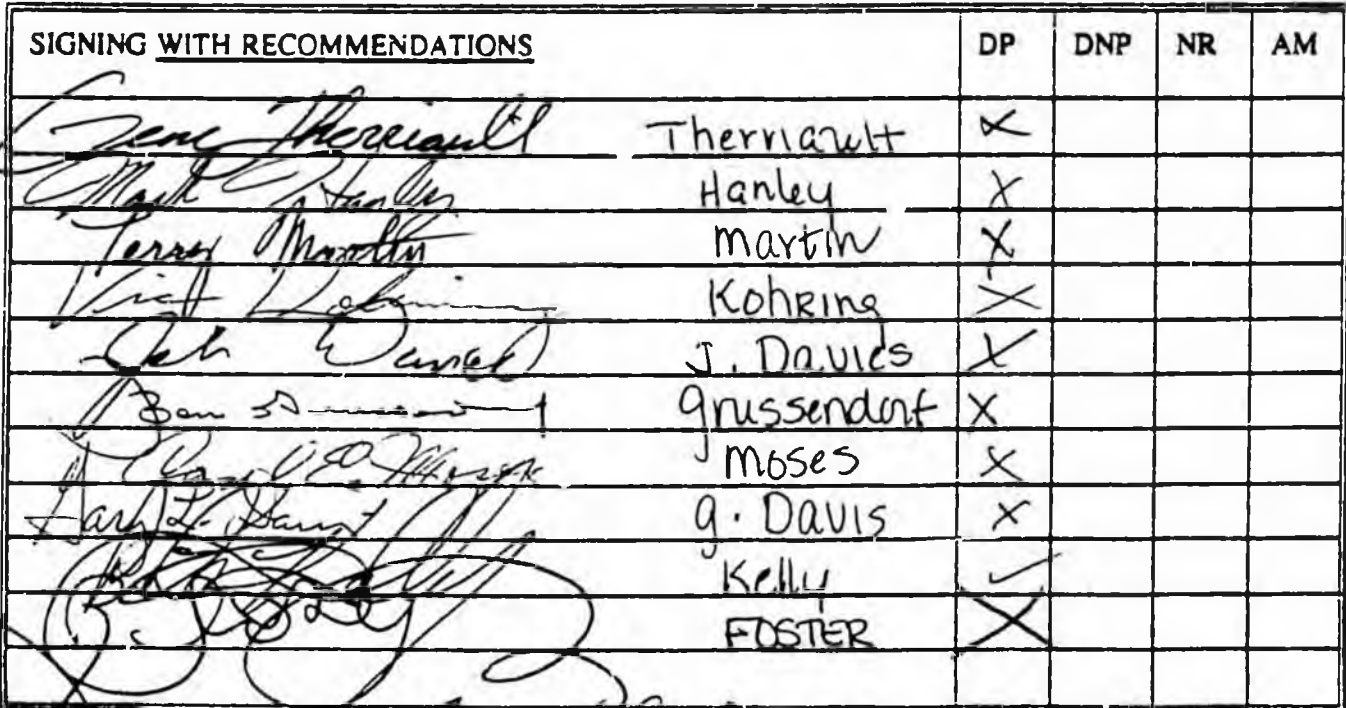 SIGNING WITH RECOMMENDATIONS DP DNP NR AM
Gene Therriault Therriault X
Mark Hanley Hanley X
Terry Martin Martin X
Vict Kohring X
Davies J. Davies X
Ben Grussendorf X
Moses Moses X
Gary L. Davis G. Davis X
Kelly ✓
FOSTER X